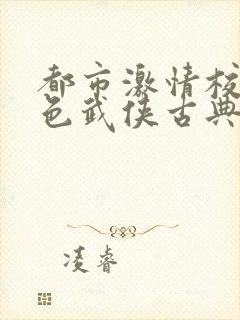 都市激情校
色武侠古典
凌睿